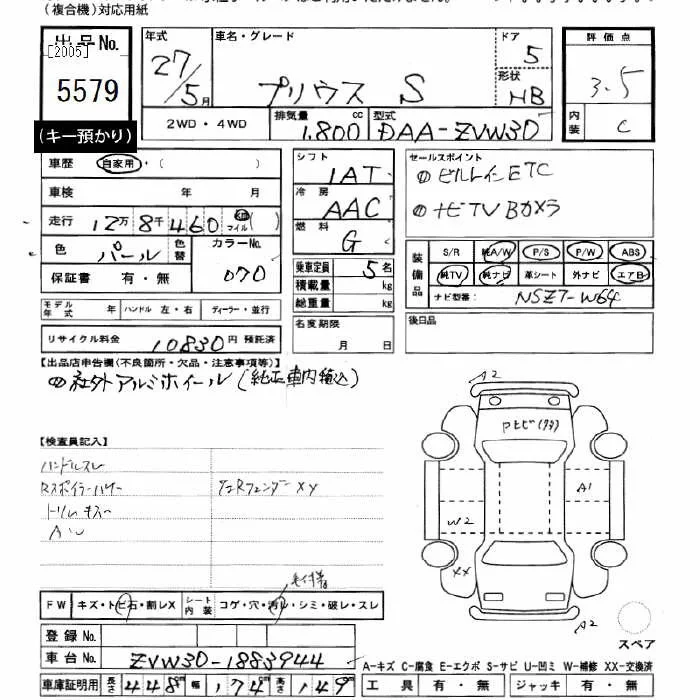 (複合機)対応用紙
出品No.
[2005]
5579
(キー預かり)
年式 車名・グレード ドア
27/5月 プリウス S 5
形状 HB
2WD・4WD 排気量 1,800 cc 型式 DAA-ZVW30
評価点
3.5
内装 C
車歴 自家用・( )
車検 年 月
走行 12万8千460 km マイル ( )
色 パール 色替 カラーNo. 070
保証書 有・無
シフト 1AT
冷房 AAC
燃料 G
乗車定員 5名
積載量 kg
総重量 kg
セールスポイント
① ビルトインETC
① ナビTV Bカメラ
装備品 S/R 純A/W P/S P/W ABS
純TV 純ナビ 革シート 外ナビ エアB
ナビ型番: NSZT-W64
モデル年式 年 ハンドル 左・右 ディーラー・並行
名変期限 月 日
後日品
リサイクル料金 10830円 預託済
【出品店申告欄(不良箇所・欠品・注意事項等)】
① 社外アルミホイール(純正車内積込)
【検査員記入】
ハンドルスレ
Rスポイラー
トリムキズ
左Rフェンダー XY
A2
Fトビ
A1
W2
XX
A2
スペア
FW キズ・トビ石・割レX シート内装 コゲ・穴・汚レ・シミ・破レ・スレ
登録No.
車台No. ZVW30-1883944
車庫証明用 長さ 448m 幅 174m 高さ 149m
A-キズ C-腐食 E-エクボ S-サビ U-凹ミ W-補修 XX-交換済
工具 有・無 ジャッキ 有・無